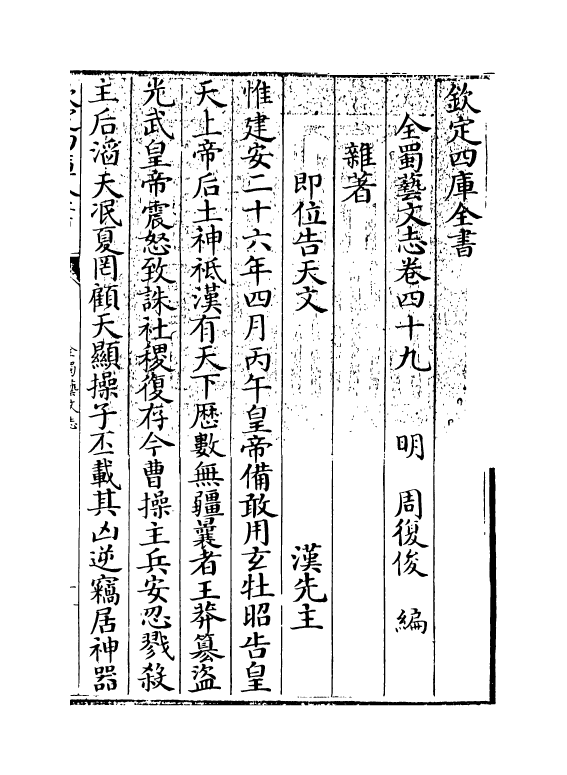 欽定四庫全書
全蜀藝文志卷四十九　明　周復俊　編
雜著
即位告天文　漢先主
惟建安二十六年四月丙午皇帝備敢用玄牡昭告皇
天上帝后土神祇漢有天下歴數無疆曩者王莽篡盜
光武皇帝震怒致誅社稷復存今曹操主兵安忍戮殺
主后滔天泯夏罔顧天顯操子丕載其凶逆竊居神器
全蜀藝文志